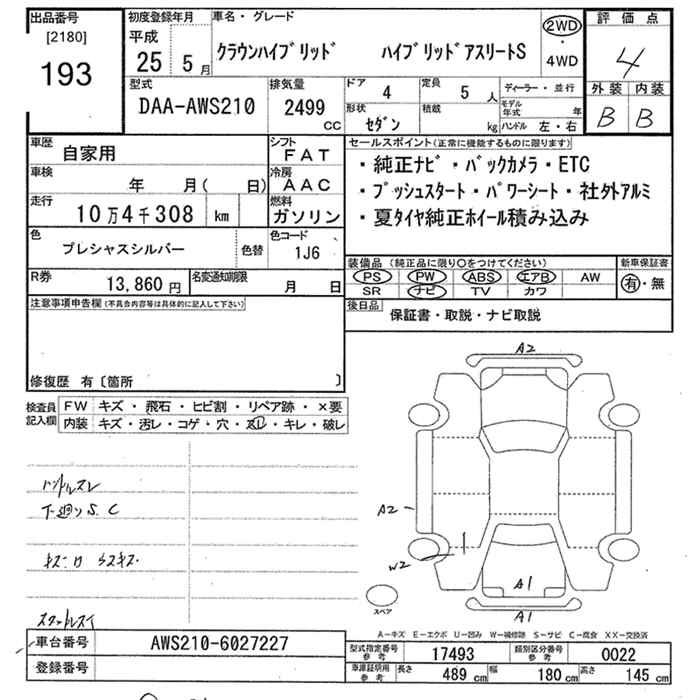 出品番号
[2180]
193
初度登録年月
平成
25 5月
車名・グレード
クラウンハイブリッド ハイブリッドアスリートS
2WD
・
4WD
評価点
4
外装 内装
B B
型式
DAA-AWS210
排気量
2499
CC
ドア 4
定員 5 人
形状
セダン
積載
kg
ディーラー・並行
モデル年式 年
ハンドル 左・右
車歴 自家用
シフト
FAT
車検 年 月( 日)
冷房
AAC
走行 10万4千308 km
燃料
ガソリン
色 プレシャスシルバー
色替
色コード
1J6
R券 13,860円
名変通知期限 月 日
セールスポイント(正常に機能するものに限ります)
・純正ナビ・バックカメラ・ETC
・プッシュスタート・パワーシート・社外アルミ
・夏タイヤ純正ホイール積み込み
装備品(純正品に限り○をつけてください)
PS PW ABS エアB AW
SR ナビ TV カワ
新車保証書
有・無
後日品
保証書・取説・ナビ取説
注意事項申告欄(不具合内容等は具体的に記入して下さい)
修復歴 有〔箇所 〕
検査員記入欄
FW キズ・飛石・ヒビ割・リペア跡・×要
内装 キズ・汚レ・コゲ・穴・スレ・キレ・破レ
ハンドルスレ
下廻りS.C
スタッドレスタイ
A2
A2
W2
A1
A1
スペア
A-キズ E-エクボ U-凹み W-補修跡 S-サビ C-腐食 XX-交換済
車台番号 AWS210-6027227
登録番号
型式指定番号参考 17493
類別区分番号参考 0022
車庫証明用参考 長さ 489cm 幅 180cm 高さ 145cm